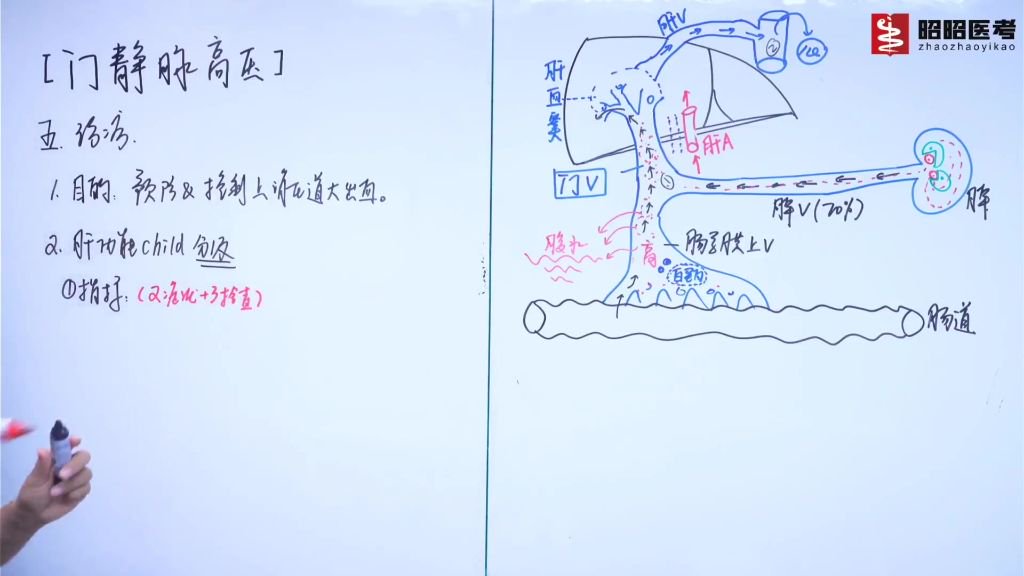 [门静脉高压]
五. 治疗.
1. 目的: 预防&控制上消化道大出血。
2. 肝功能child分级
①指标: (2症状+3检查)
肝V
肝血窦
肝A
门V
脾V(20%)
脾
腹水
高
肠系膜上V
白蛋白
肠道
昭昭医考
zhaozhaoyikao